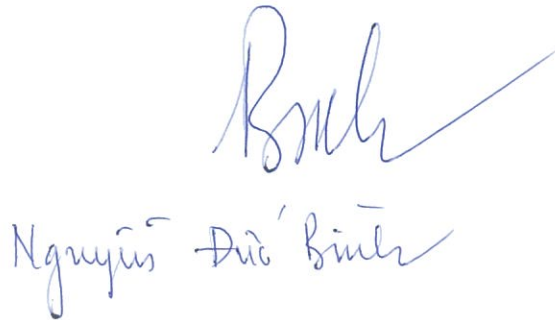 Bình
Nguyễn Đức Bình